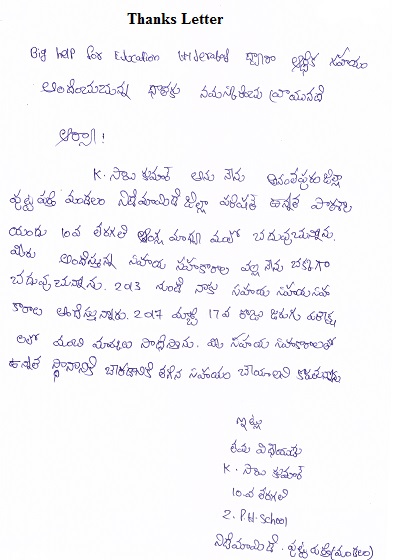 Thanks Letter
Big help for Education Hyderabad ద్వారా ఆర్థిక సహాయం
అందించుచున్న దాతకు నమస్కరించి వ్రాయునది
K. సాయి కుమార్ అను నేను అనంతపురం జిల్లా
పుట్టపర్తి మండలం నిడిమామిడి జిల్లా పరిషత్ ఉన్నత పాఠశాల
యందు 10వ తరగతి ఆంగ్ల మాధ్యమంలో చదువుచున్నాను.
మీరు అందిస్తున్న సహాయ సహకారాల వల్ల నేను చక్కగా
చదువుచున్నాను. 2013 నుండి నాకు సహాయ సహ
కారాలు అందిస్తున్నారు. 2017 మార్చి 17వ తేదీ జరుగు పరీక్ష
లలో మంచి మార్కులు సాధిస్తాను. మీ సహాయ సహకారాలతో
ఉన్నత స్థానానికి చేరడానికి తగిన సహాయం చేయాలని కోరుతున్నాను
ఇట్లు
తమ విధేయుడు
K. సాయి కుమార్
10వ తరగతి
Z. P.H. School
నిడిమామిడి. పుట్టపర్తి (మండలం)